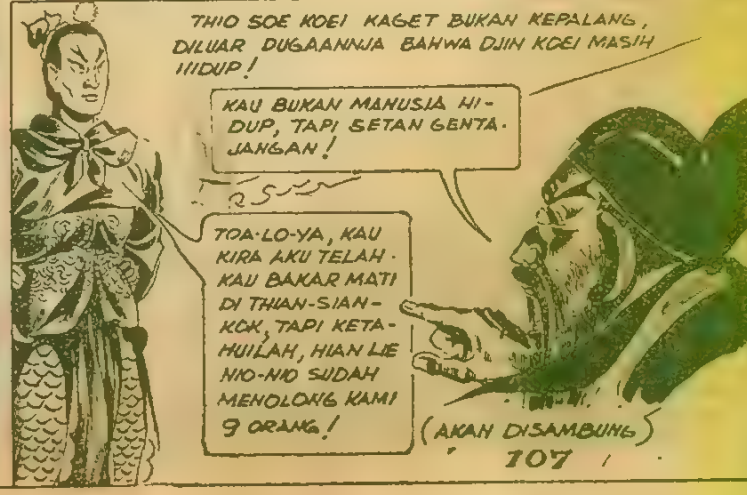 THIO SOE KOEI KAGET BUKAN KEPALANG,
DILUAR DUGAANNJA BAHWA DJIN KOEI MASIH
HIDUP!
KAU BUKAN MANUSIA HI-
DUP, TAPI SETAN GENTA-
JANGAN!
TOA-LO-YA, KAU
KIRA AKU TELAH
KAU BAKAR MATI
DI THIAN-SIAN-
KOK, TAPI KETA-
HUILAH, HIAN LIE
NIO-NIO SUDAH
MENOLONG KAMI
9 ORANG!
(AKAN DISAMBUNG)
107